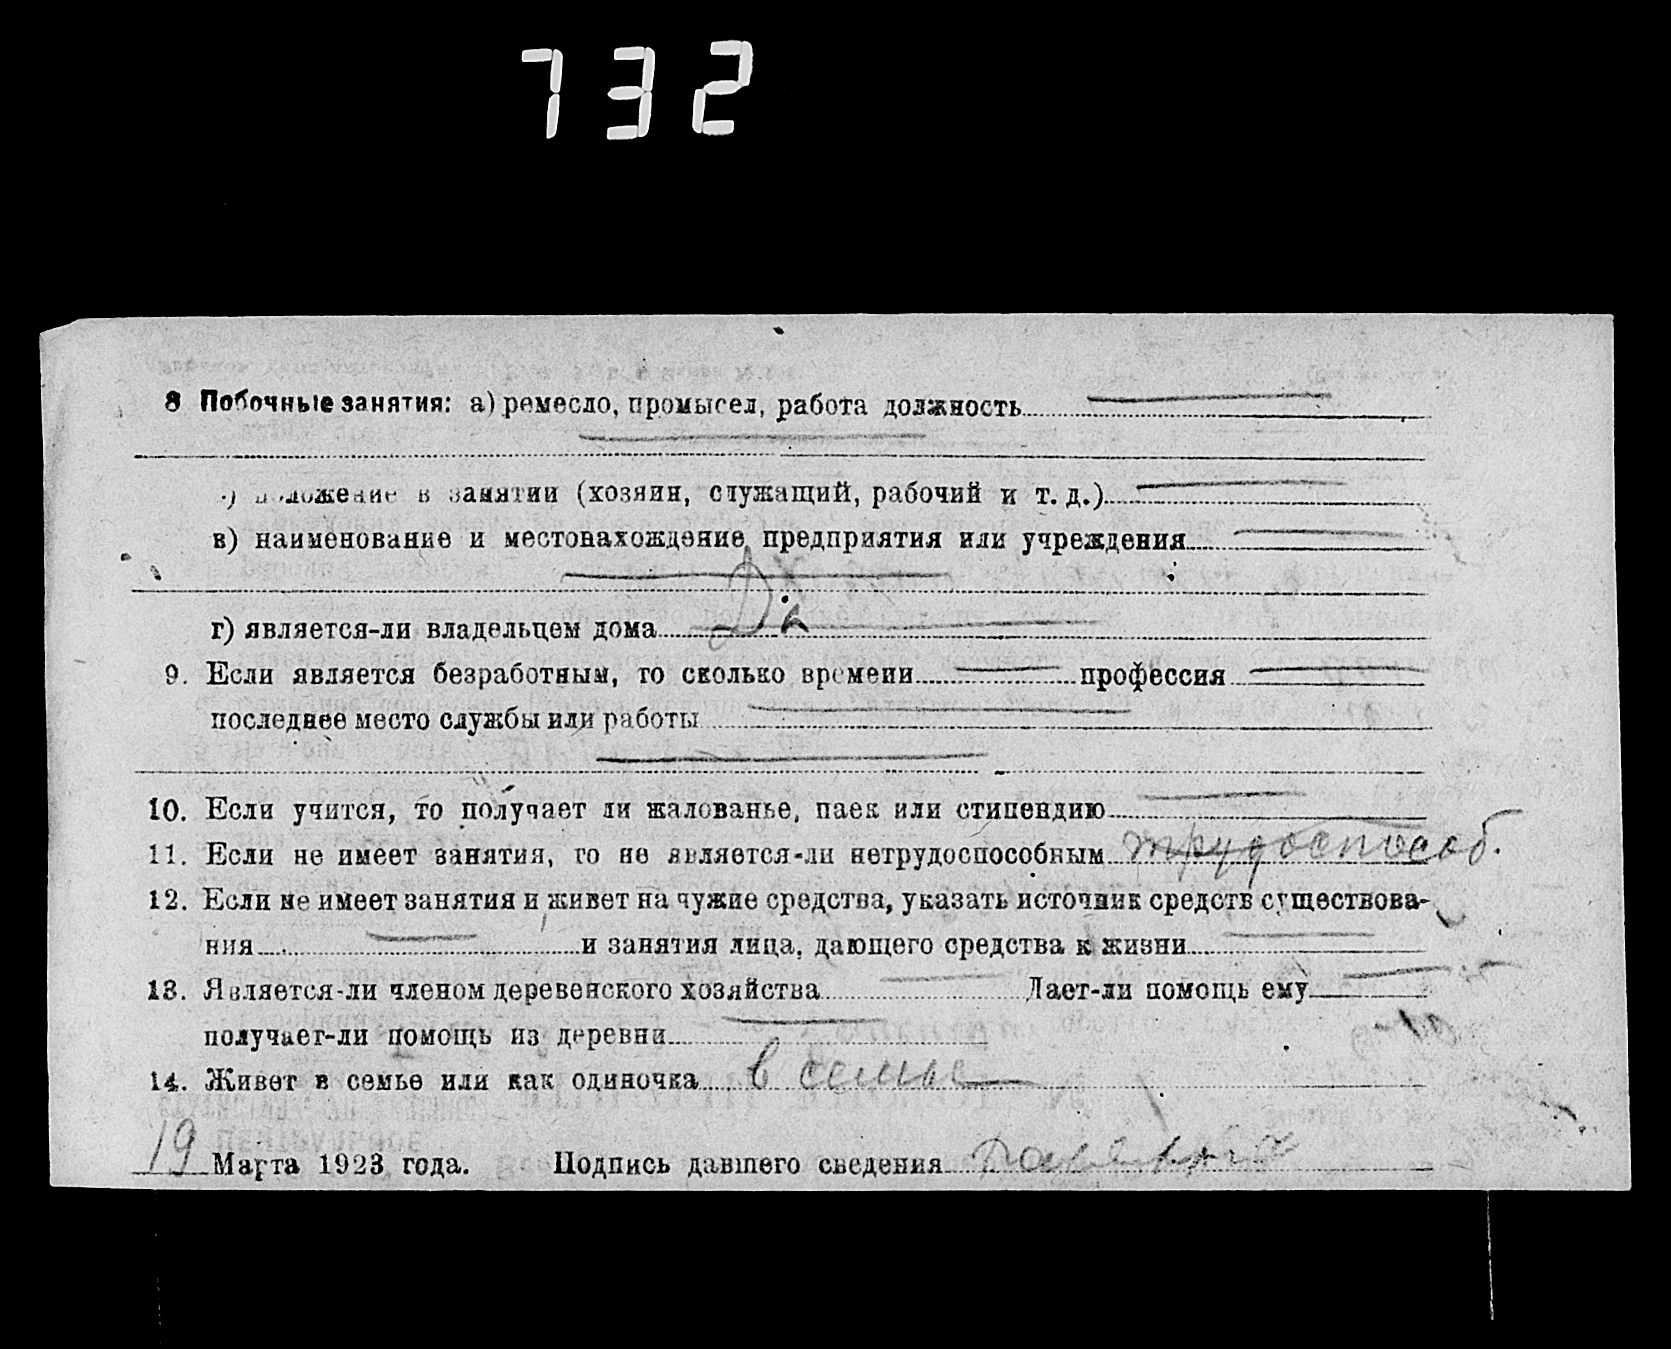 732
8 Побочные занятия: а) ремесло, промысел, работа должность
положение в занятии (хозяин, служащий, рабочий и т. д.)
в) наименование и местонахождение предприятия или учреждения
г) является-ли владельцем дома Да
9. Если является безработным, то сколько времени профессия
последнее место службы или работы
10. Если учится, то получает ли жалованье, паек или стипендию
11. Если не имеет занятия, то не является-ли нетрудоспособным трудоспособ.
12. Если не имеет занятия и живет на чужие средства, указать источник средств существова-
ния и занятия лица, дающего средства к жизни
13. Является-ли членом деревенского хозяйства Дает-ли помощь ему
получает-ли помощь из деревни
14. Живет в семье или как одиночка в семье
19 Марта 1923 года. Подпись давшего сведения